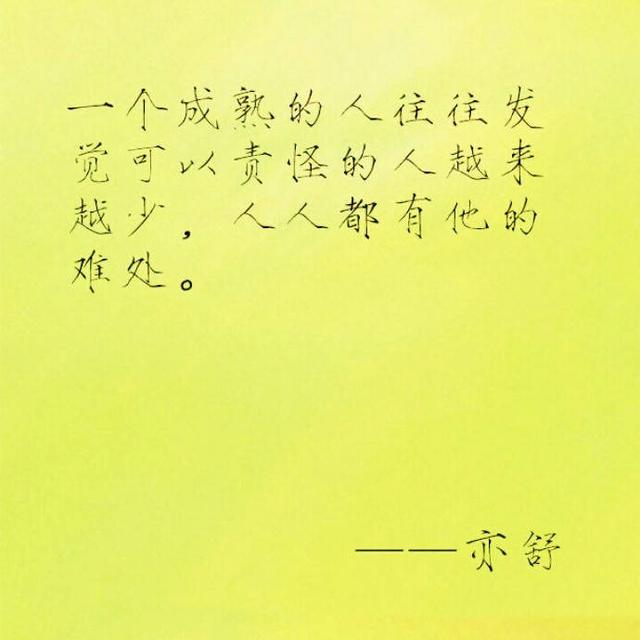 一个成熟的人往往发
觉可以责怪的人越来
越少，人人都有他的
难处。
——亦舒